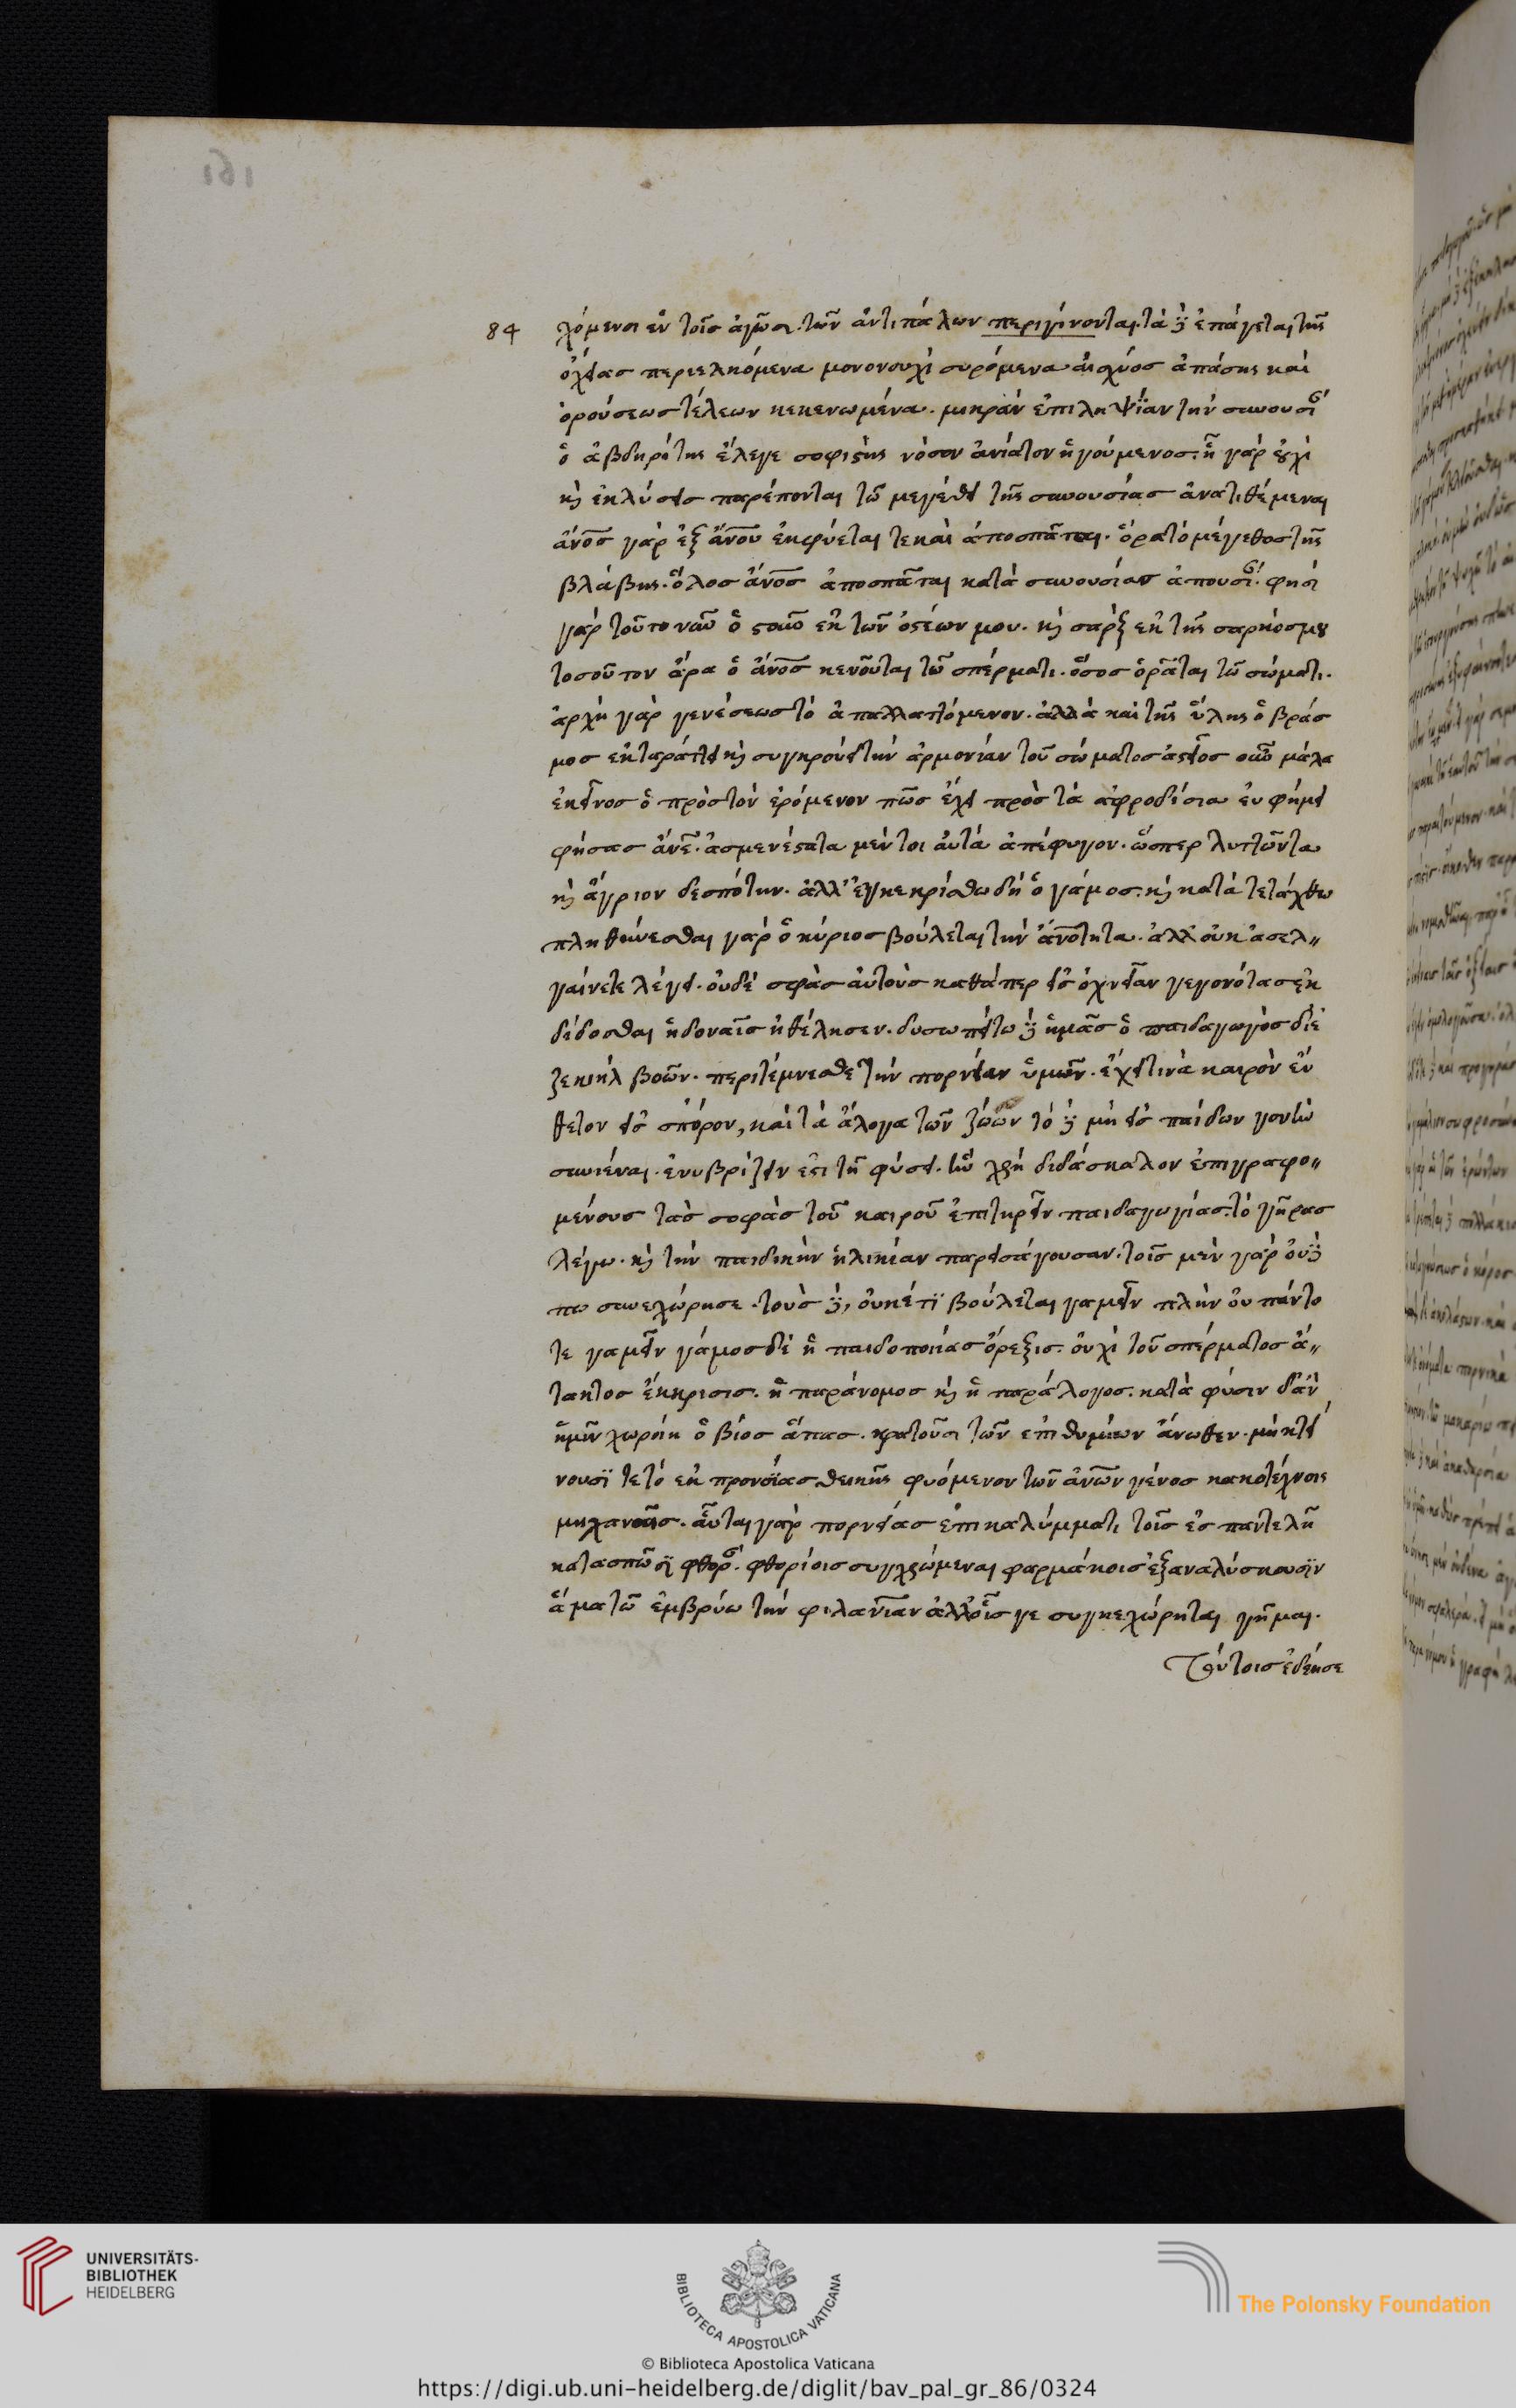 161
84
χόμενοι ἐν τοῖς ἀγῶσι τῶν ἀντιπάλων περιγίνονται. τὰ δὲ ἐπάγεται τῆς
ὀχείας περιελκόμενα μονονουχὶ συρόμενα ἰσχύος ἁπάσης καὶ
ὁρούσεως τέλεων κεκενωμένα. μικρὰν ἐπιληψίαν τὴν συνουσίαν
ὁ ἀβδηρίτης ἔλεγε σοφιστὴς νόσον ἀνίατον ἡγούμενος. ἢ γὰρ οὐχὶ
κὶ ἐκλύσεις παρέπονται τῶ μεγέθει τῆς συνουσίας ἀνατιθέμεναι
ἄνος γὰρ ἐξ ἄνου ἐκφύεται τε καὶ ἀποσπᾶται. ὅρα τὸ μέγεθος τῆς
βλάβης. ὅλος ἄνος ἀποσπᾶται κατὰ συνουσίας ἀπουσίαν. φησὶ
γὰρ τοῦτο νῦν ὀστοῦν ἐκ τῶν ὀστέων μου. κὶ σὰρξ ἐκ τῆς σαρκός μου
τοσοῦτον ἄρα ὁ ἄνος κενοῦται τῶ σπέρματι. ὅσος ὁρᾶται τῶ σώματι.
ἀρχὴ γὰρ γενέσεως τὸ ἀπαλλαττόμενον. ἀλλὰ καὶ τῆς ὕλης ὁ βράσ
μος ἐκταράττει κὶ συγκρούει τὴν ἁρμονίαν τοῦ σώματος ἀστεῖος οὖν μάλα
ἐκεῖνος ὁ πρὸς τὸν ἐρόμενον πῶς ἔχει πρὸς τὰ ἀφροδίσια εὐφήμει
φήσας ἄνε. ἀσμενέστατα μέν τοι αὐτὰ ἀπέφυγον. ὥσπερ λυττῶντα
κὶ ἄγριον δεσπότην. ἀλλ' ἐγκεκρίσθω δὴ ὁ γάμος. κὶ κατὰ τετάχθω
πληθύνεσθαι γὰρ ὁ κύριος βούλεται τὴν ἀνότητα. ἀλλ' οὐκ ἀσελ〃
γαίνετε λέγει. οὐδὲ σφὰς αὐτοὺς καθάπερ εἰς ὀχείαν γεγονότας ἐκ
δίδοσθαι ἡδοναῖς ἠθέλησεν. δυσωπείτω δὲ ἡμᾶς ὁ παιδαγωγὸς διὲ
ζεκιὴλ βοῶν. περιτέμνεσθε τὴν πορνείαν ὑμῶν. ἔχει τινὰ καιρὸν εὔ
θετον εἰς σπόρον, καὶ τὰ ἄλογα τῶν ζώων τὸ δὲ μὴ εἰς παίδων γονὴν
συνιέναι. ἐνυβρίζειν ἐστὶ τῆ φύσει. ἣν χρὴ διδάσκαλον ἐπιγραφο〃
μένους τὰς σοφὰς τοῦ καιροῦ ἐπιτηρεῖν παιδαγωγίας. τὸ γῆρας
λέγω. κὶ τὴν παιδικὴν ἡλικίαν παρεισάγουσαν. τοῖς μὲν γὰρ οὐδέ
πω συνεχώρησε. τοὺς δὲ, οὐκέτι βούλεται γαμεῖν πλὴν οὐ πάντο
τε γαμεῖν γάμος δὲ ἡ παιδοποιίας ὄρεξις. οὐχὶ τοῦ σπέρματος ἄ〃
τακτος ἔκκρισις. ἡ παράνομος κὶ ἡ παράλογος. κατὰ φύσιν δ' ἂν
ἡμῖν χωροίη ὁ βίος ἅπας. κρατοῦσι τῶν ἐπιθυμιῶν ἄνωθεν. μὴ κτεί
νουσί τε τὸ ἐκ προνοίας θεικῆς φυόμενον τῶν ἀνων γένος κακοτέχνοις
μηχαναῖς. αὗται γὰρ πορνείας ἐπικαλύμματι τοῖς εἰς παντελῆ
κατασπῶσι φθοράν. φθορίοις συγχρώμεναι φαρμάκοις ἐξαναλύσκουσιν
ἅμα τῶ ἐμβρύω τὴν φιλανίαν ἀλλ' οἷς γε συγκεχώρηται γῆμαι.
Τούτοις ἐδέησε
UNIVERSITÄTS-
BIBLIOTHEK
HEIDELBERG
BIBLIOTECA APOSTOLICA VATICANA
The Polonsky Foundation
© Biblioteca Apostolica Vaticana
https://digi.ub.uni-heidelberg.de/diglit/bav_pal_gr_86/0324